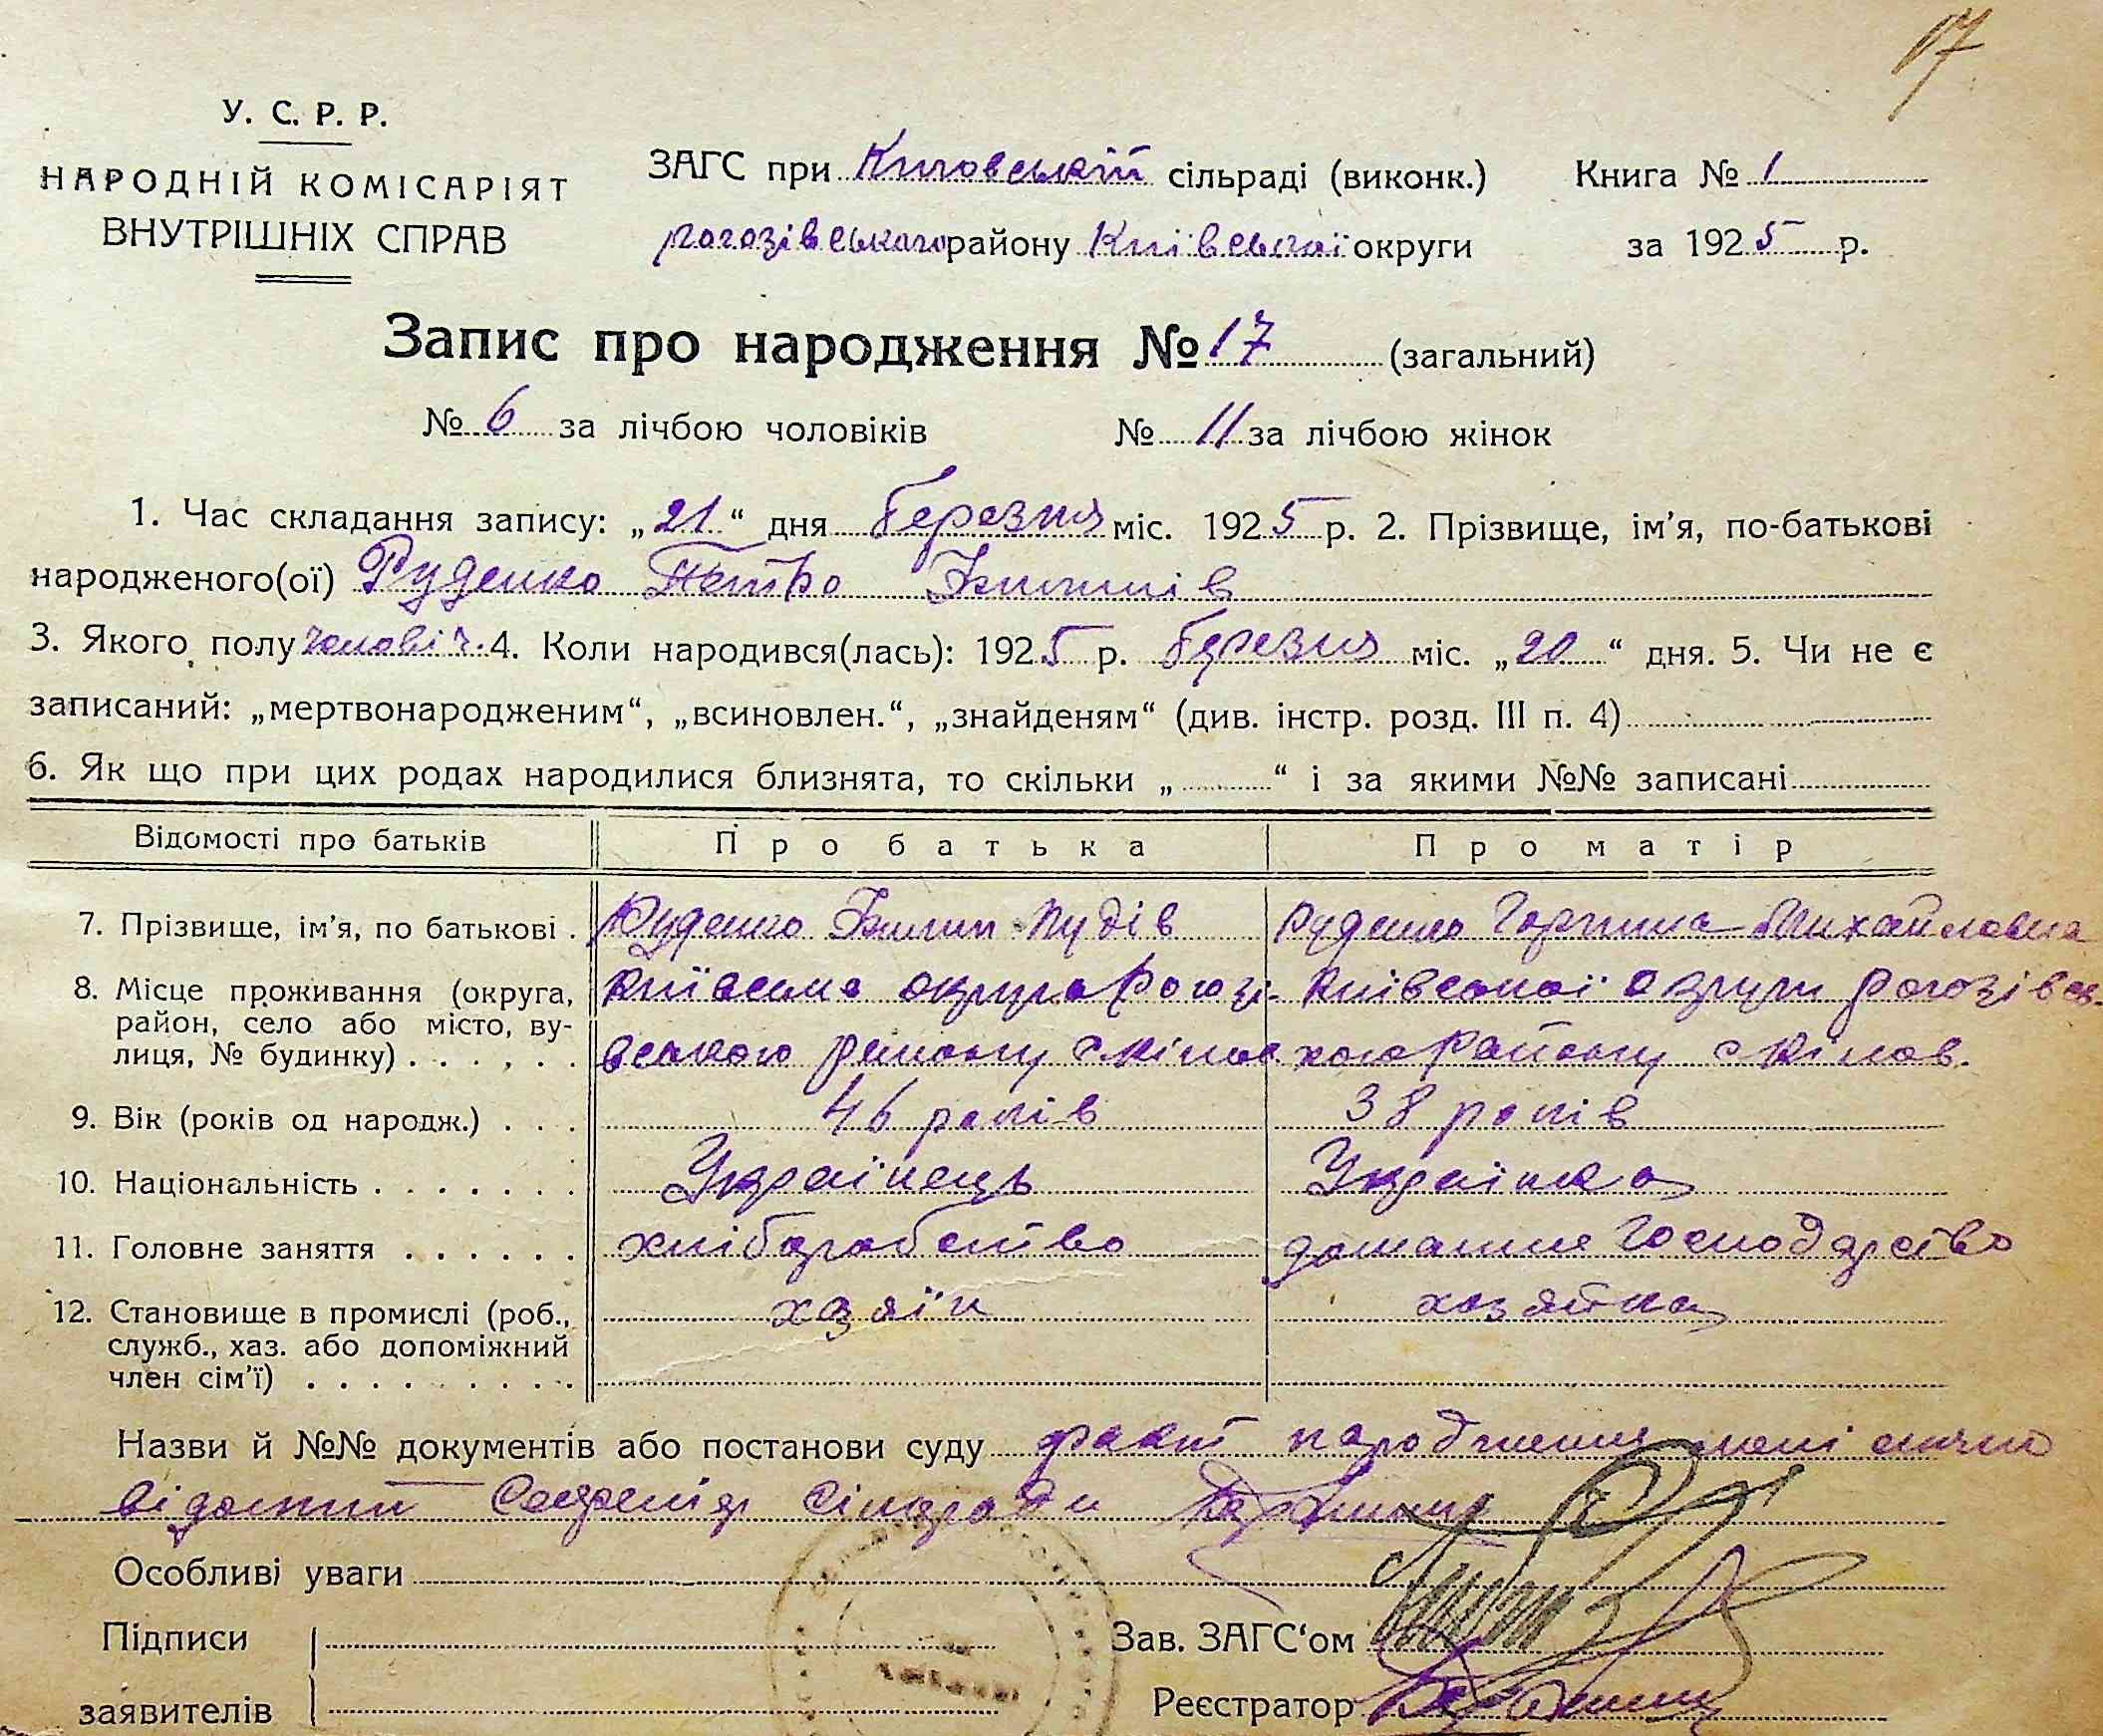 17
У. С. Р. Р.
НАРОДНІЙ КОМІСАРІЯТ
ВНУТРІШНІХ СПРАВ
ЗАГС при сільраді (виконк.)
Рогозівського району Київської округи
Книга № 1
за 1925 р.
Запис про народження № 17 (загальний)
№ 6 за лічбою чоловіків № 11 за лічбою жінок
1. Час складання запису: „21“ дня березня міс. 1925 р. 2. Прізвище, ім'я, по-батькові
народженого(ої) Руденко Петро
3. Якого полу чоловіч. 4. Коли народився(лась): 1925 р. березня міс. „20“ дня. 5. Чи не є
записаний: „мертвонародженим“, „всиновлен.“, „знайденям“ (див. інстр. розд. III п. 4)
6. Як що при цих родах народилися близнята, то скільки „ “ і за якими №№ записані
Відомості про батьків Про батька Про матір
7. Прізвище, ім'я, по батькові . Руденко Пудів Руденко Горпина Михайловна
8. Місце проживання (округа, Київська округа Рогозі- Київської округи Рогозівсь-
район, село або місто, ву-
лиця, № будинку) . . . . . . вського району с кого Району с
9. Вік (років од народж.) . . . 46 років 38 років
10. Національність . . . . . . . Українець Українка
11. Головне заняття . . . . . . хліборобство домашнє Господарство
12. Становище в промислі (роб., хазяїн хазяйка
служб., хаз. або допоміжний
член сім'ї) . . . . . . . . .
Назви й №№ документів або постанови суду факт народження мені
відомий Секретар Сільради
Особливі уваги
Підписи
заявителів
Зав. ЗАГС'ом
Реєстратор